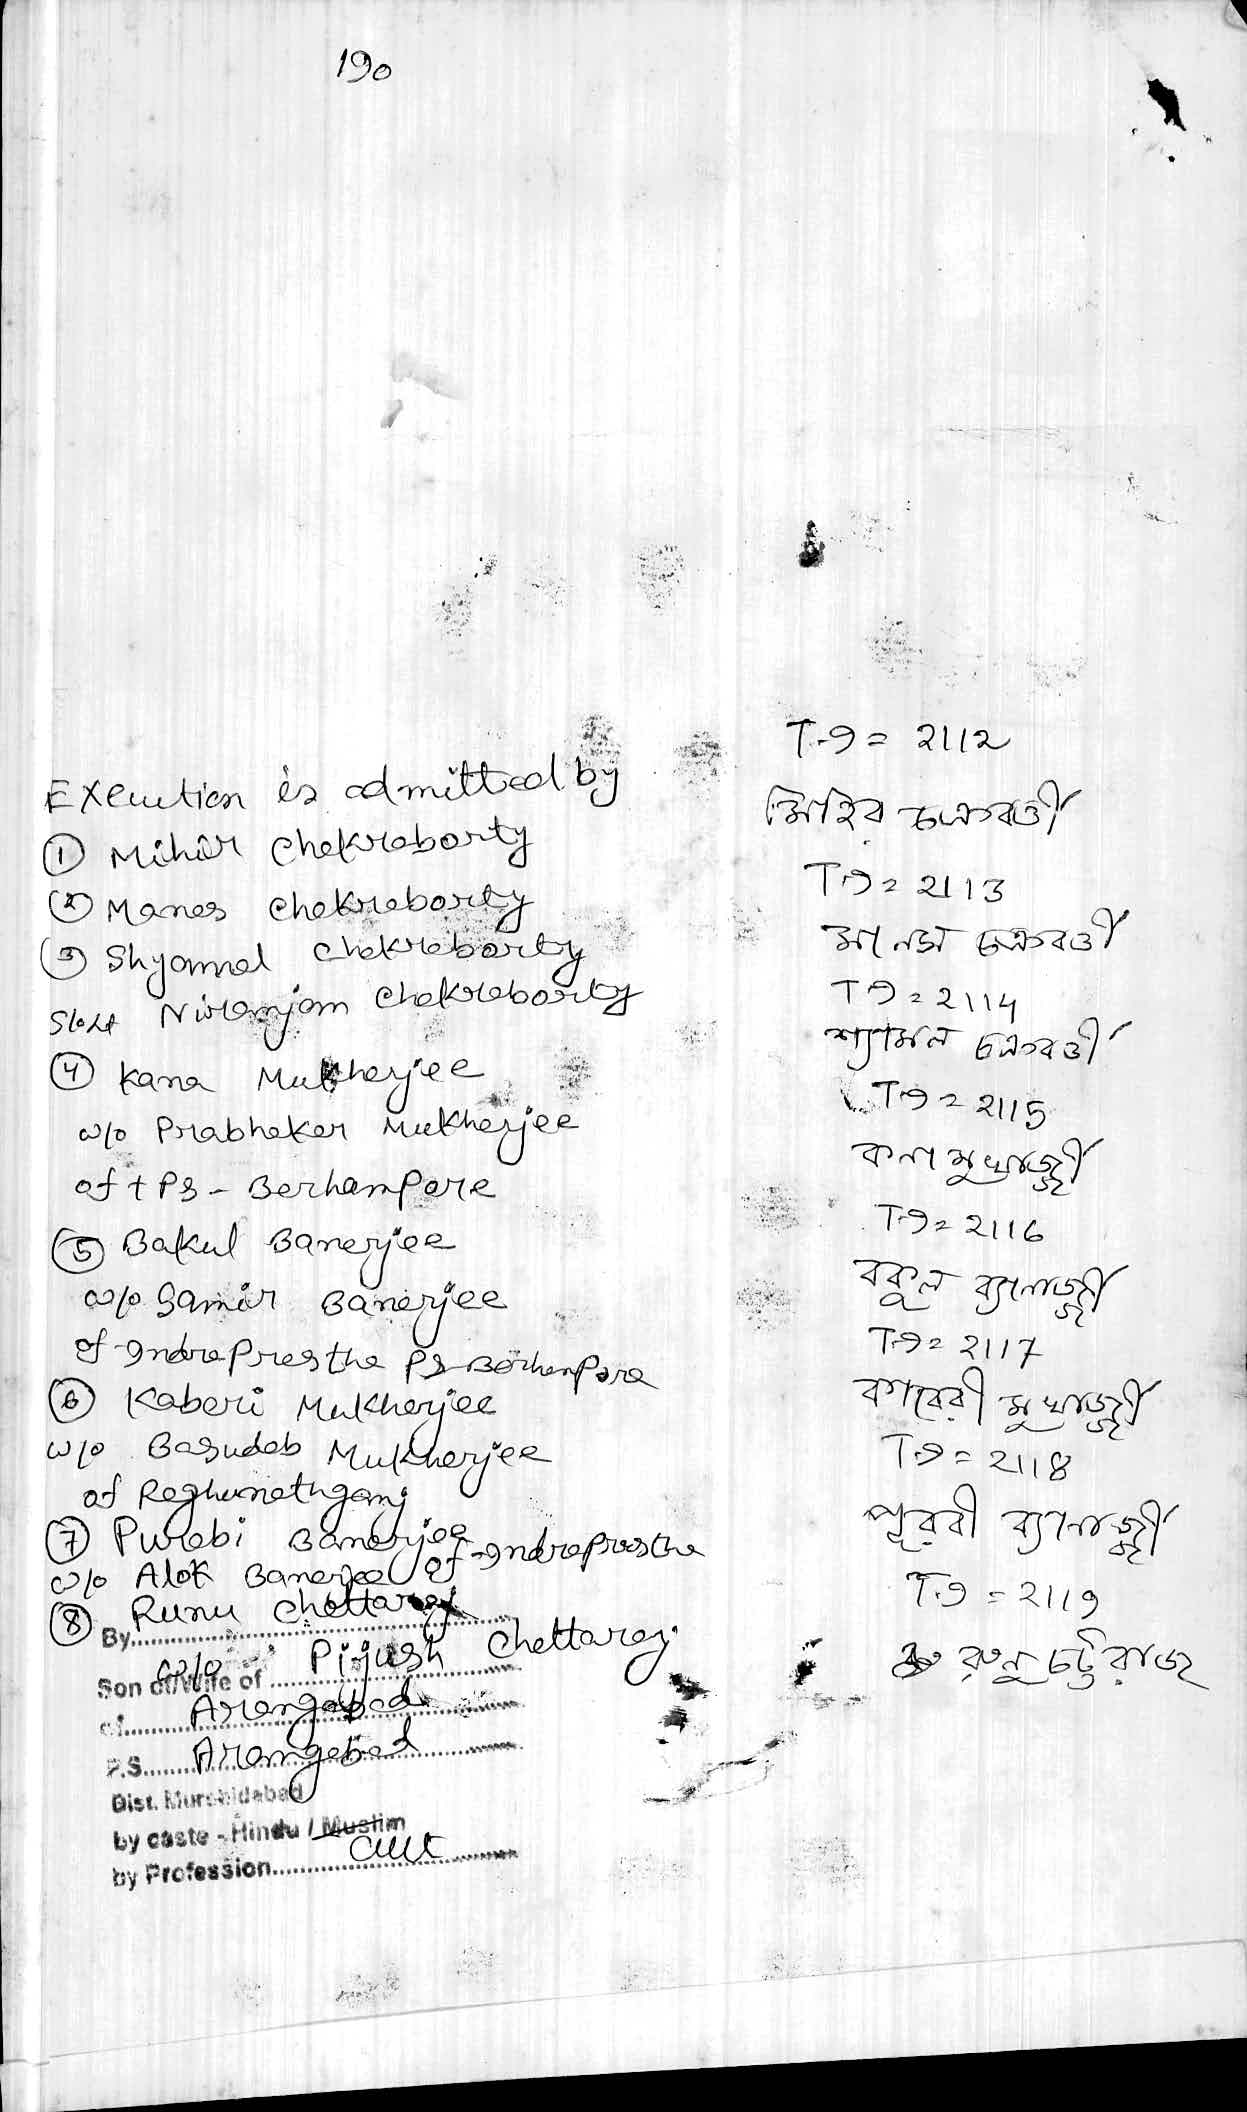 190
Execution is admitted by
① Mihir Chakraborty
② Manas Chakraborty
③ Shyamal Chakraborty
S/o Lt Niranjan Chakraborty
④ Kana Mukherjee
w/o Prabhakar Mukherjee
of + PS - Berhampore
⑤ Bakul Banerjee
w/o Samir Banerjee
of Indraprastha PS Berhampore
⑥ Kaberi Mukherjee
w/o Basudeb Mukherjee
of Raghunathganj
⑦ Purabi Banerjee
w/o Alok Banerjee of Indraprastha
⑧ Runu Chattaraj
By
w/o Pijush Chattaraj.
Son of/Wife of
of Arangabad
P.S. Arangabad
Dist. Murshidabad
by caste - Hindu / Muslim
by Profession
= 2112
মিহির চক্রবর্ত্তী
= 2113
মানস চক্রবর্ত্তী
= 2114
শ্যামল চক্রবর্ত্তী
= 2115
কনা মুখার্জ্জী
= 2116
বকুল ব্যানার্জ্জী
= 2117
কাবেরী মুখার্জ্জী
= 2118
পূরবী ব্যানার্জ্জী
= 2119
রুনু চট্টরাজ